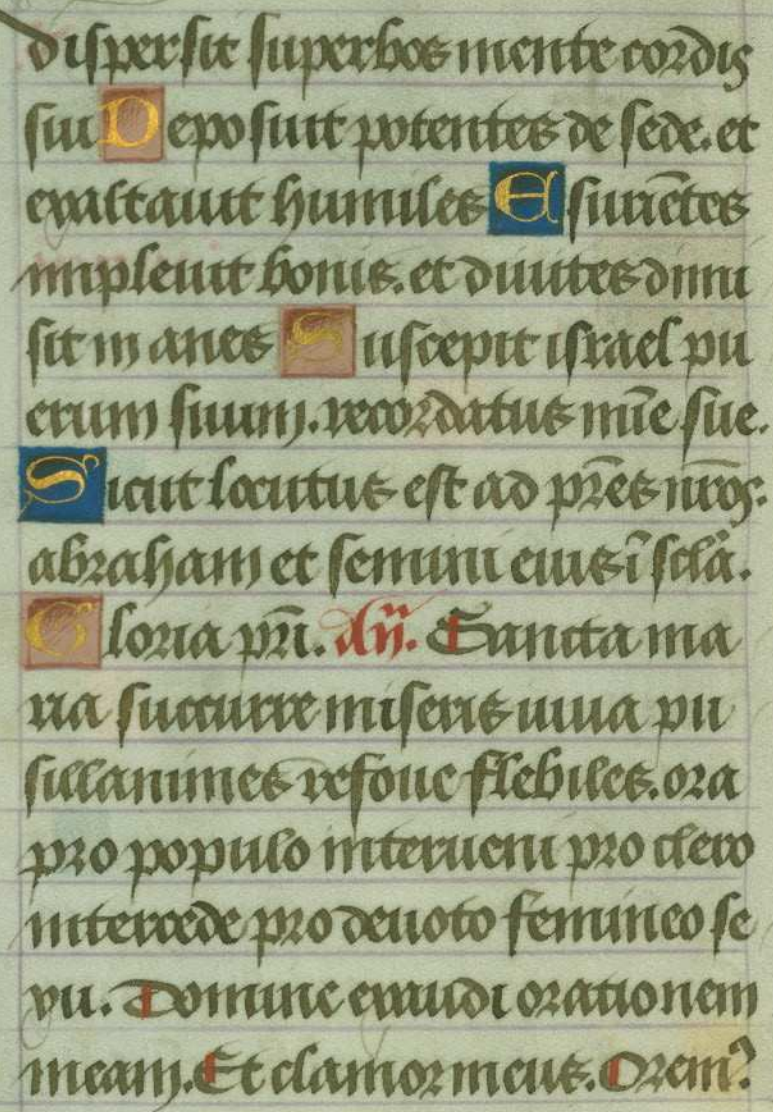 dispersit superbos mente cordis
sui Deposuit potentes de sede. et
exaltauit humiles Esuriẽtes
impleuit bonis. et diuites dimi
sit in anes Suscepit israel pu
erum suum. recordatus mĩe sue.
Sicut locutus est ad pr̃es nr̃os.
abraham et semini eius ĩ scl̃a.
Gloria pr̃i. añ. Sancta ma
ria succurre miseris iuua pu
sillanimes refoue flebiles. ora
pro populo interueni pro clero
intercede pro deuoto femineo se
xu. Domine exaudi orationem
meam. Et clamor meus. Orem᾽